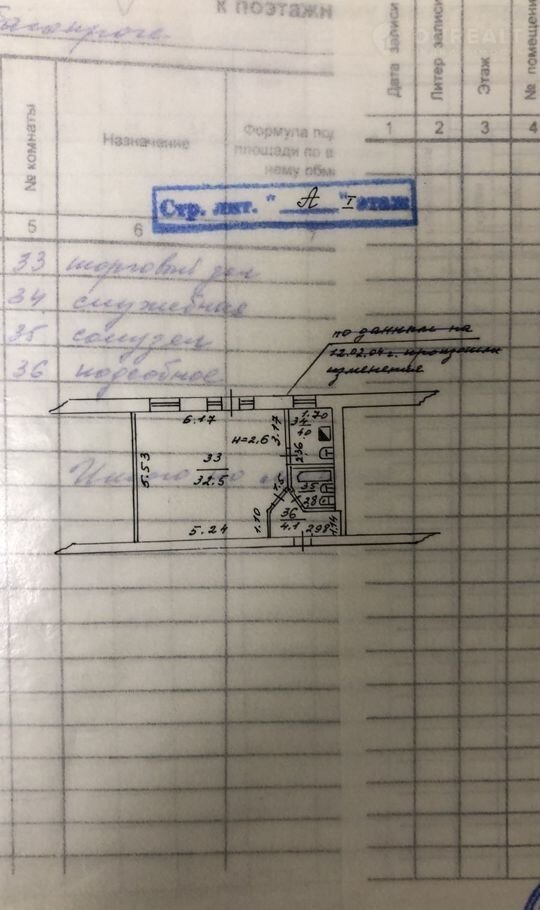 к поэтажн
Дата записи
Литер записи
Этаж
№ помещени
№ комнаты
Назначение
Формула под
площади по в
нему обм
1 2 3 4
Стр. лит. " А " I этаж
5 6 7
33 торговый зал
34 служебная
35 санузел
36 подсобное
по данным на
12.02.04 г. произошли
изменения
6.17
1.70
34
4.0
н=2.6
3.17
2.36
5.53
33
32.5
1.6
35
2.8
36
4.1
1.10
5.24
2.98
1.14